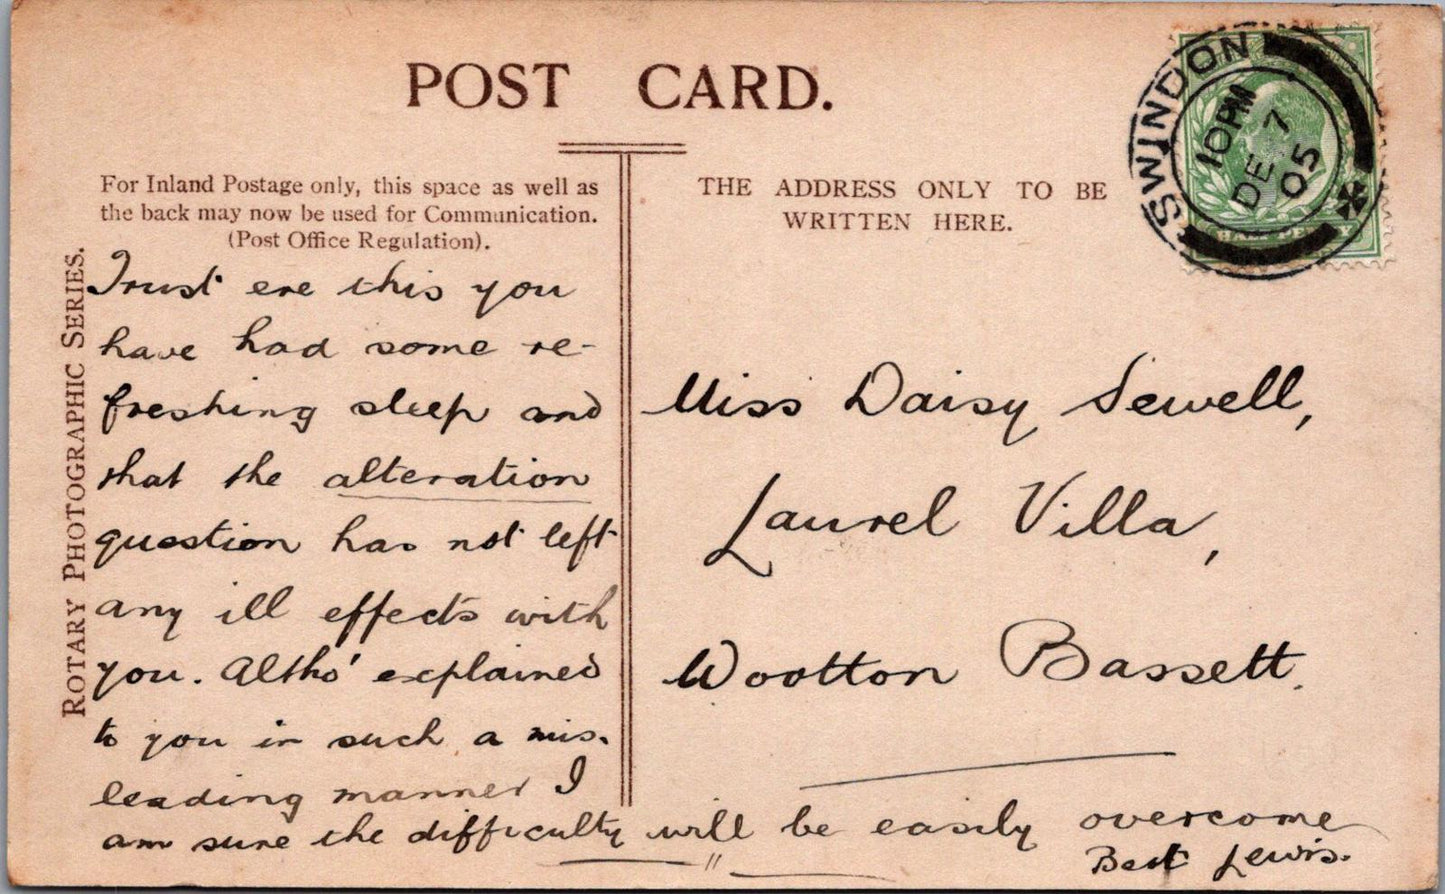 POST CARD.
For Inland Postage only, this space as well as
the back may now be used for Communication.
(Post Office Regulation).
THE ADDRESS ONLY TO BE
WRITTEN HERE.
SWINDON
10PM
DE 7
05
HALF PENNY
ROTARY PHOTOGRAPHIC SERIES.
Trust ere this you
have had some re-
freshing sleep and
that the alteration
question has not left
any ill effects with
you. Altho' explained
to you in such a mis-
leading manner I
am sure the difficulty will be easily overcome
Bert Lewis.
Miss Daisy Sewell,
Laurel Villa,
Wootton Bassett.